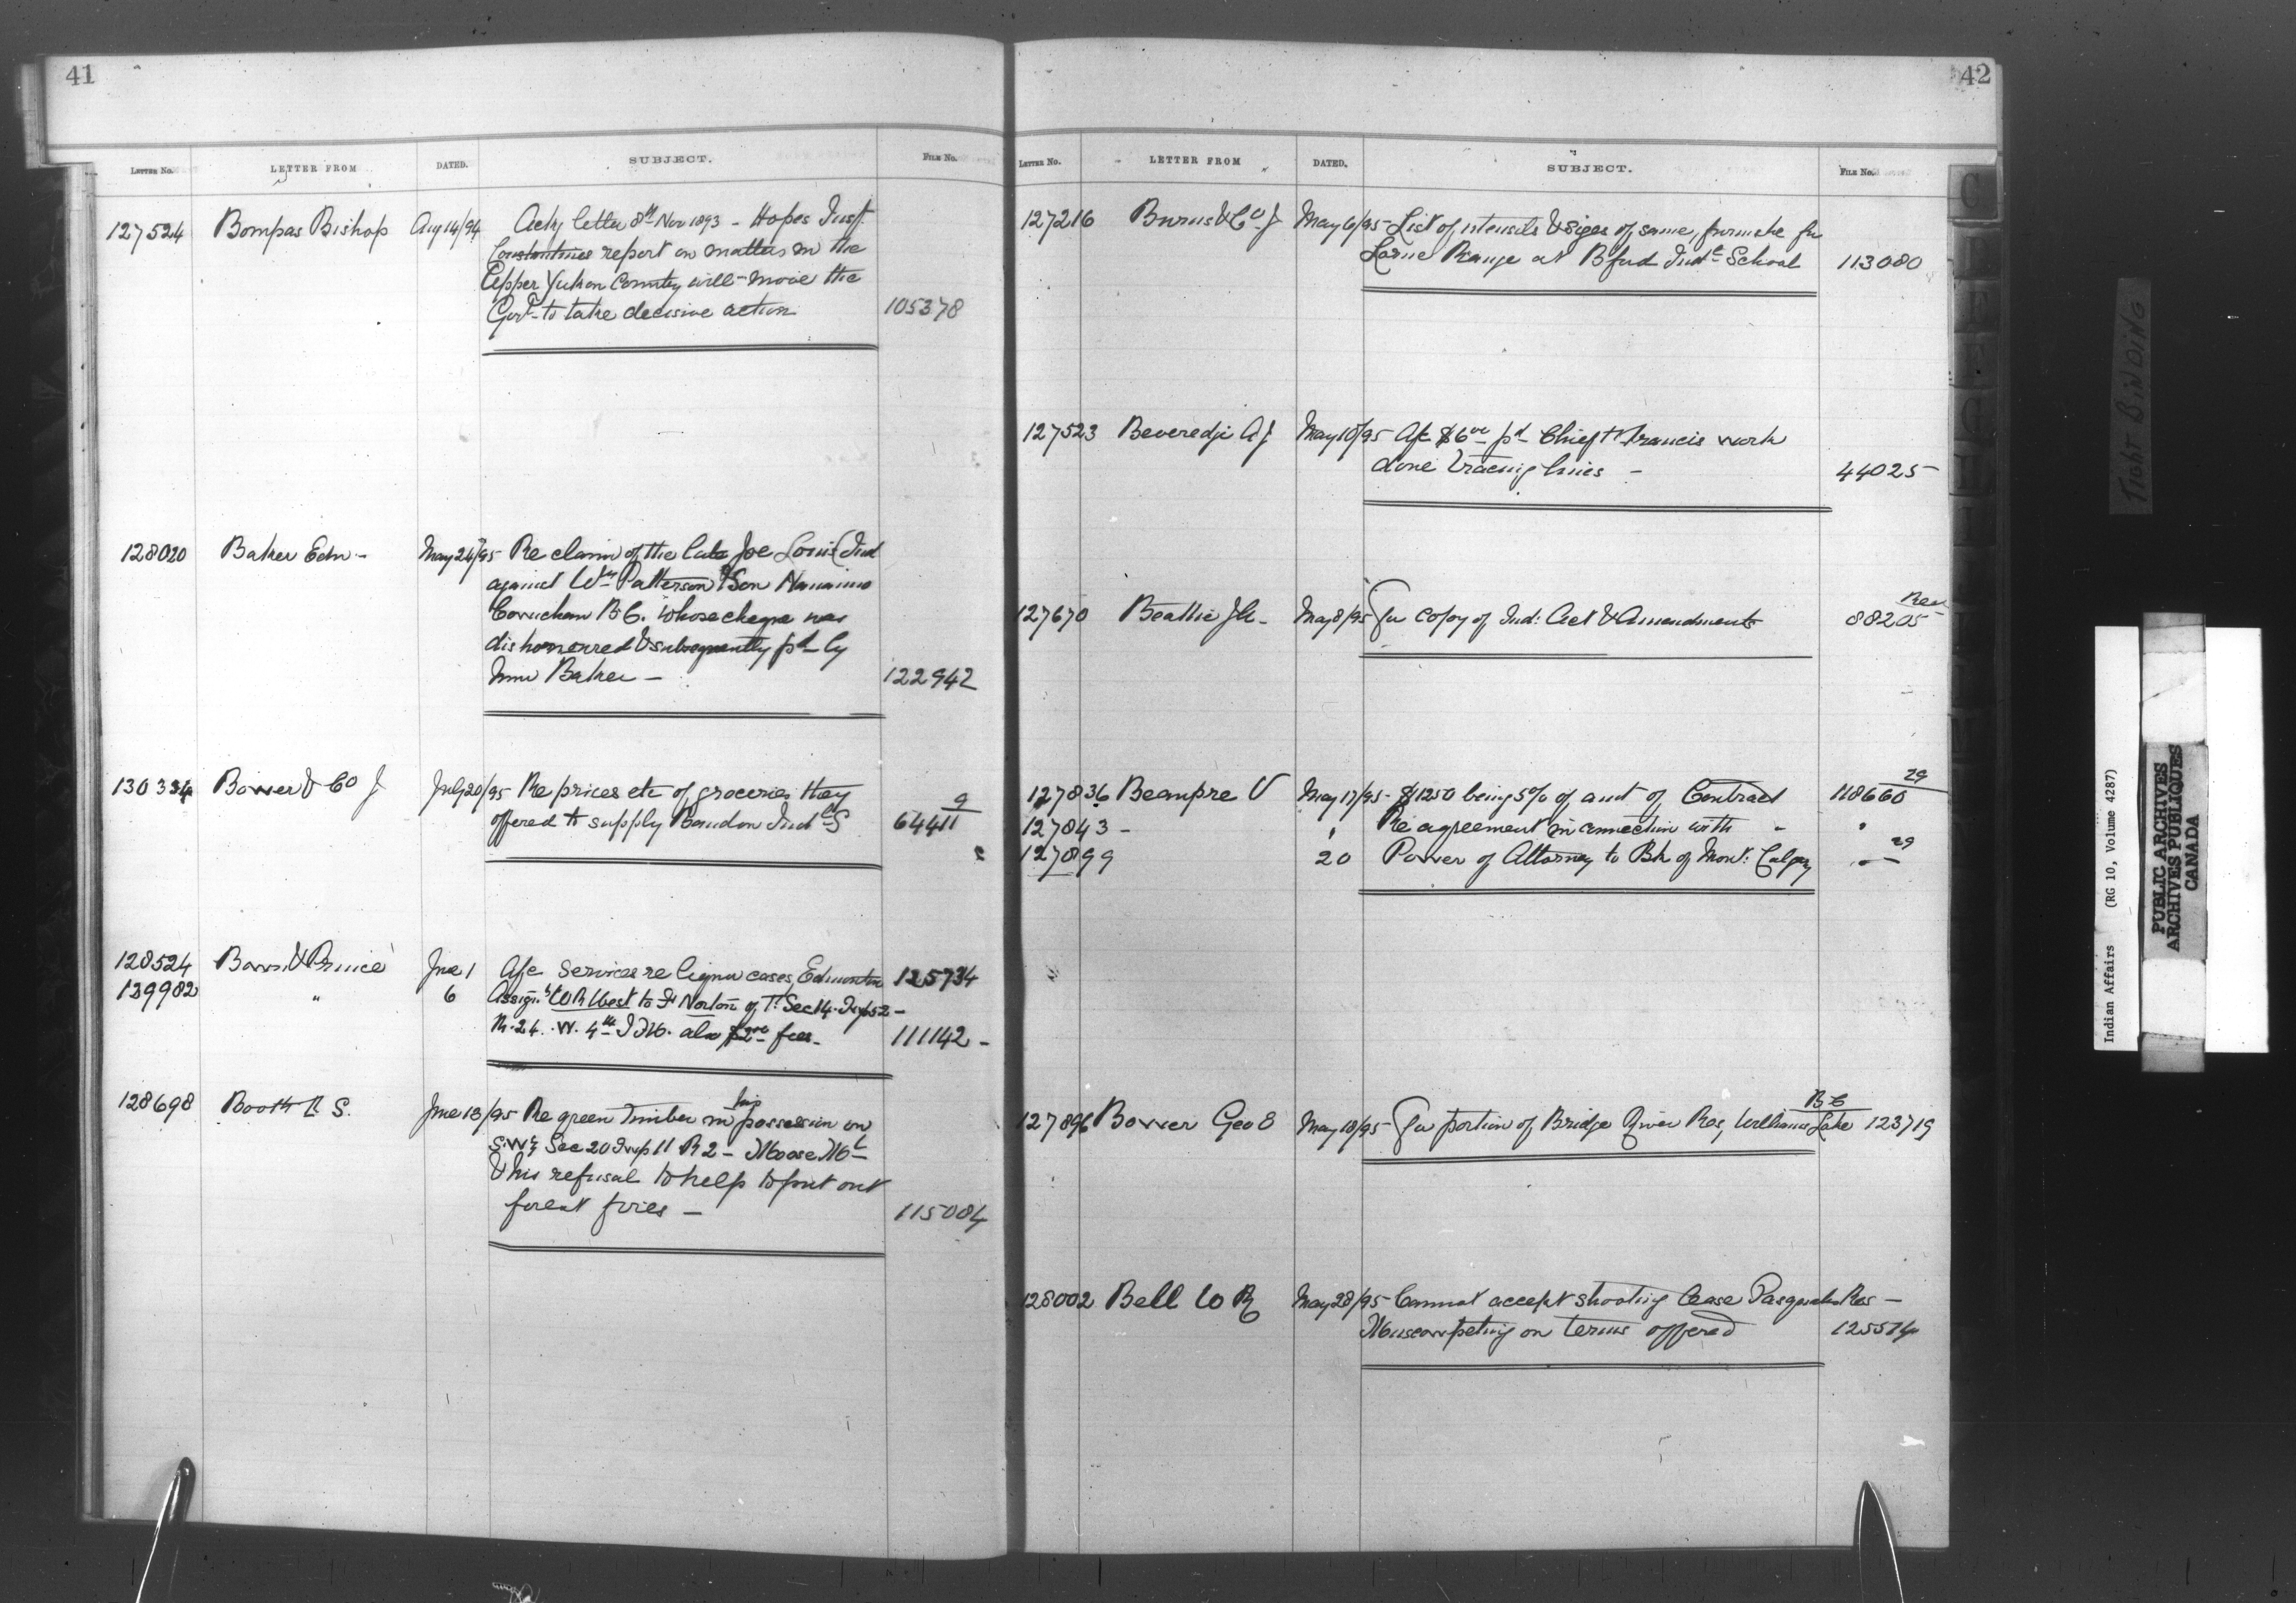 41
LETTER No. LETTER FROM DATED. SUBJECT. FILE No.
127524 Bompas Bishop Aug 14/94 Ackg letter 8th Nov 1893 - Hopes Insp.
Constantines report on matters in the
Upper Yukon Country will move the
Govt to take decisive action 105378
128020 Baker Edw - May 24/95 Re claim of the late Joe Louis (Ind
against Wm Patterson & Son Nanaimo
Cowichan B.C. whose cheque was
dishonorred & subsequently pd by
him Baker - 122942
130334 Bower & Co J July 20/95 Re prices etc of groceries they 9
offered to supply Brandon Indl S 64411
128524 & Prince June 1 A/c Services re liquor cases, Edmonton 125734
129982 " 6 Assign.t W R West to Norton of Sec 14. Twp 52 -
R. 24. W. 4th I M. also $2.00 fees - 111142 -
128698 Booth R S. June 13/95 Re green timber in his possession on
SW¼ Sec 20 Twp 11 R 2 - Moose Mt
& his refusal to help to put out
forest fires - 115084
42
LETTER No. LETTER FROM DATED. SUBJECT. FILE No.
127216 Burns & Co J May 6/95 List of utensils & sizes of same, furnishe for
Lorne Range at Bford Indl School 113080
127523 Beveredge A J May 10/95 A/c $6.00 pd Chief Francis work
done tracing lines - 44025
127670 Beattie May 8/95 For copy of Ind: Act & Amendments 88205
127836 Beaupre V May 17/95 - $1250 being 5% of amt of Contract 118660 29
127843 - " Re agreement in connection with - "
127899 20 Power of Attorney to Bk of Mont: Calgary " — 29
127896 Bower Geo E May 18/95 - For portion of Bridge River Res, Williams Lake B C 123719
128002 Bell W R May 28/95 - Cannot accept shooting lease Pasquahs Res -
Muscowpeting on terms offered 125514
C
D
E
F
G
TIGHT BINDING
Indian Affairs (RG 10, Volume 4287)
PUBLIC ARCHIVES
ARCHIVES PUBLIQUES
CANADA